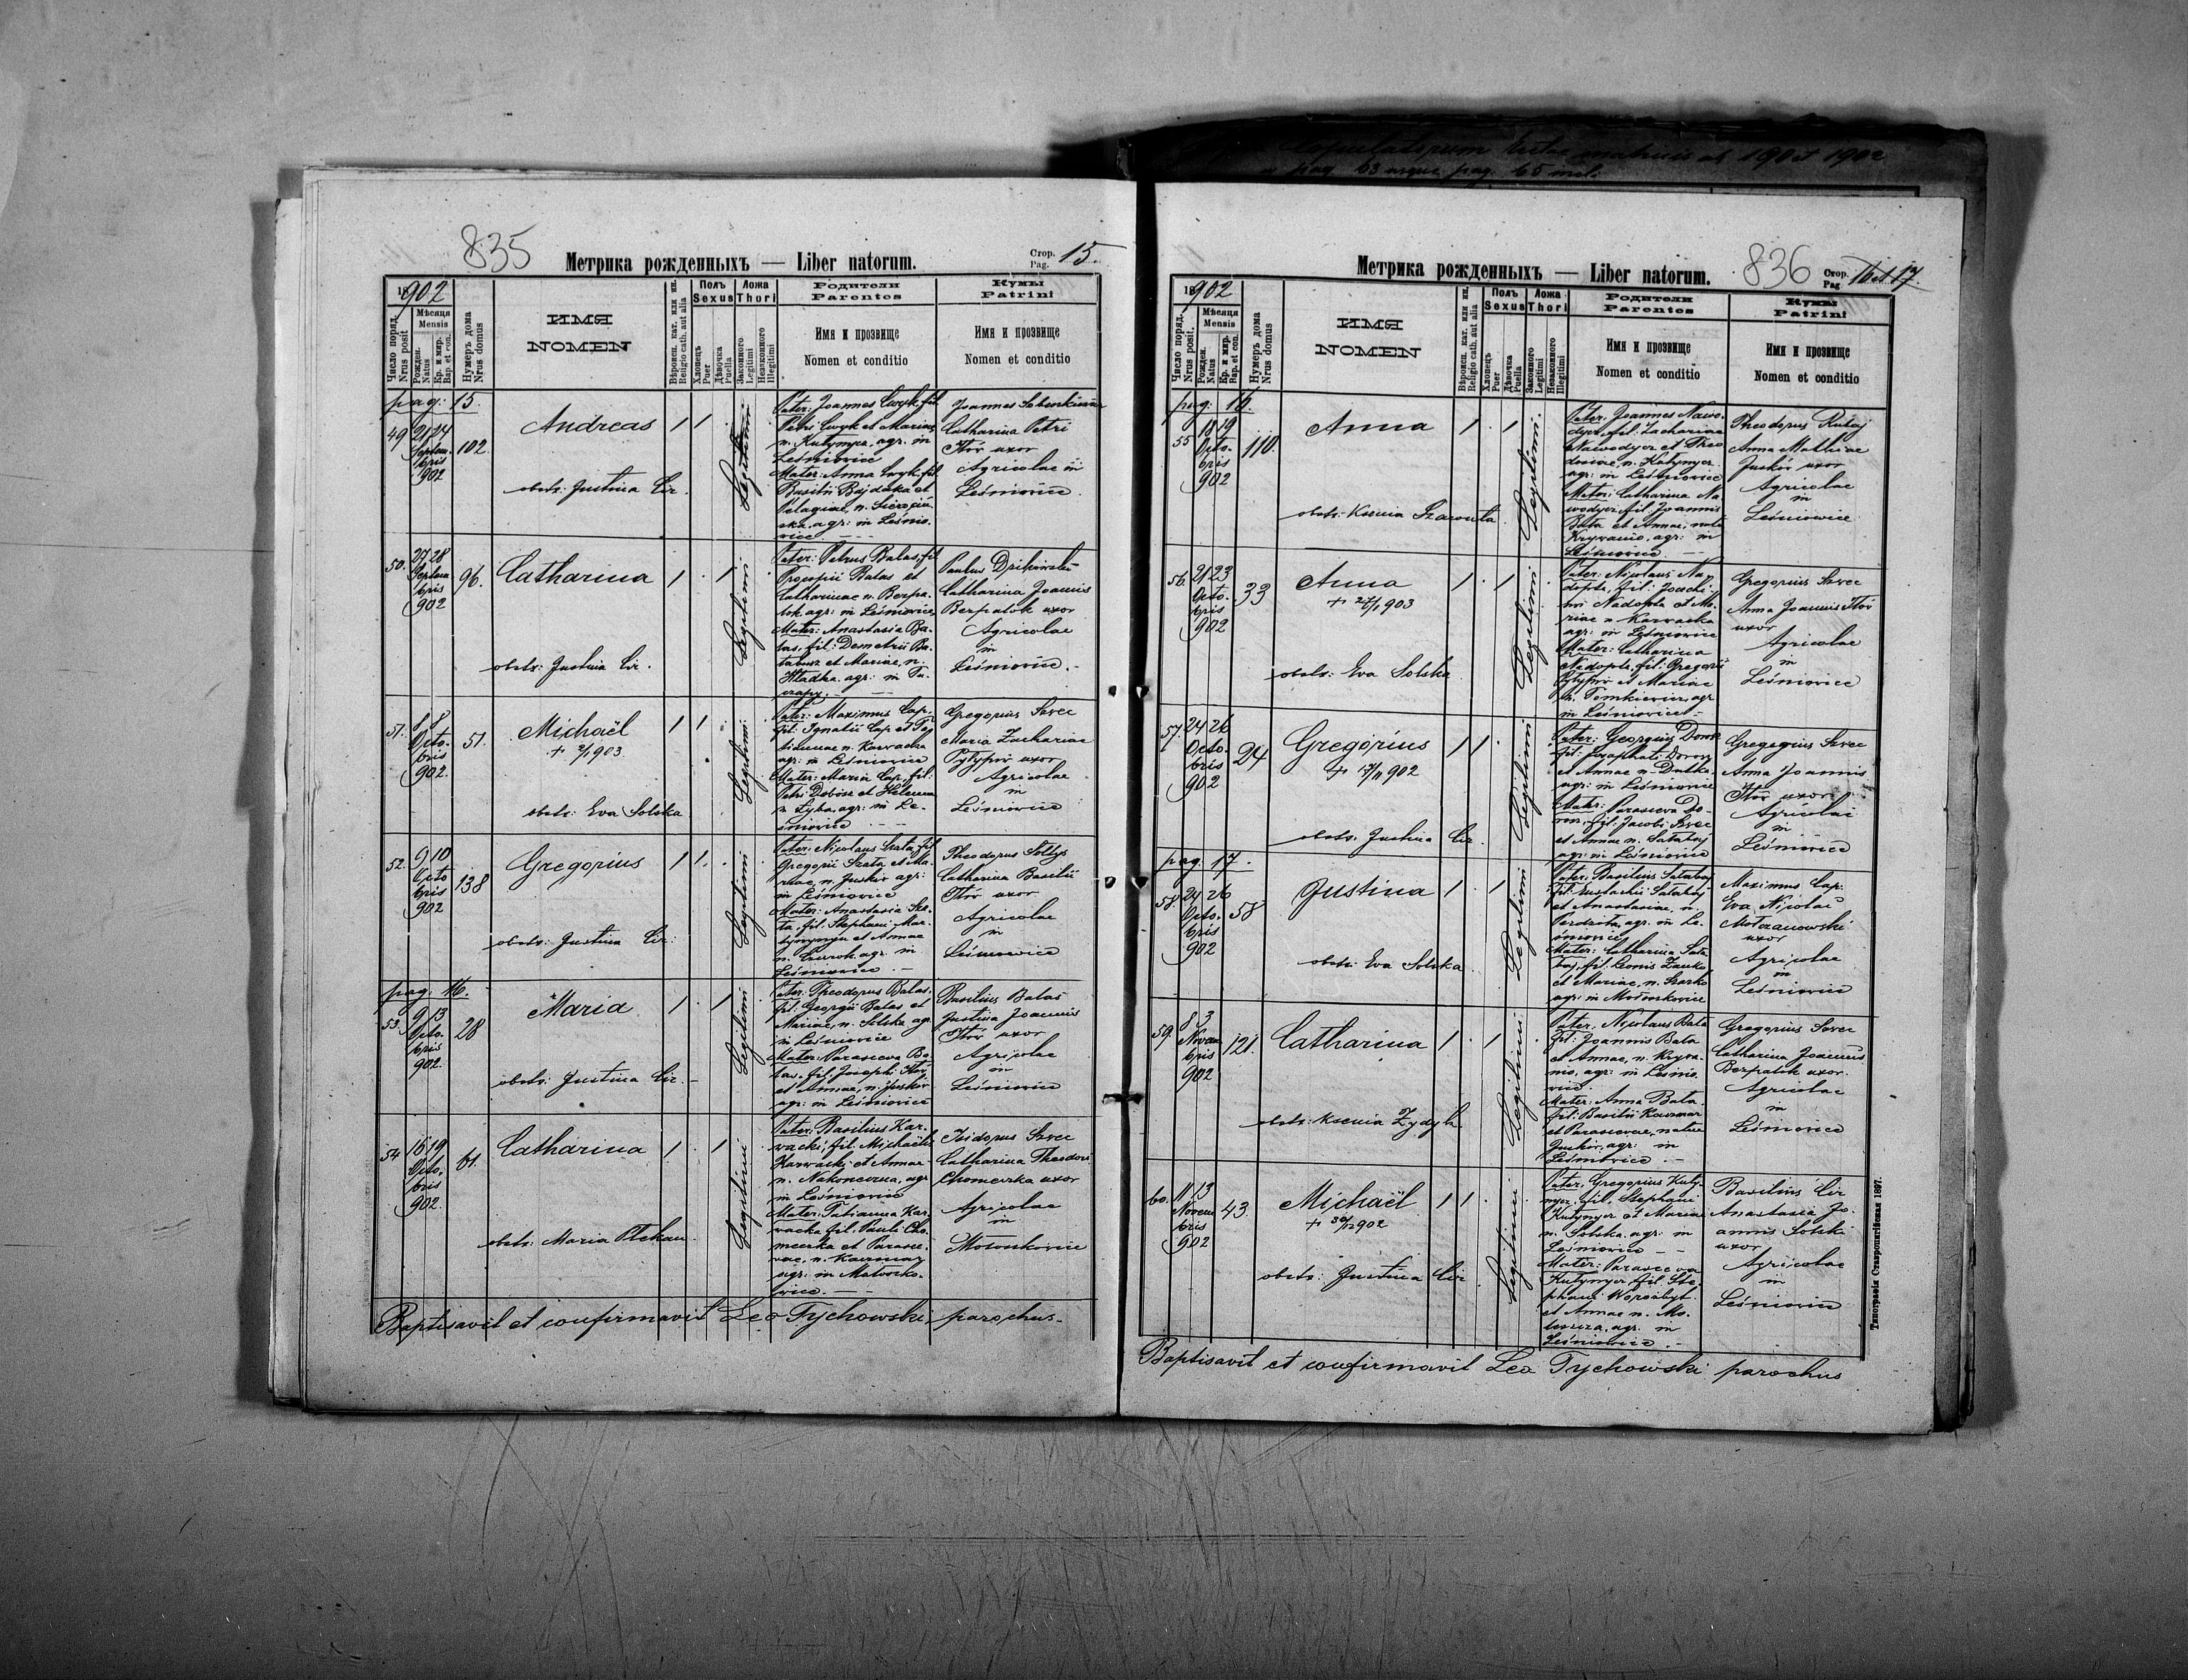 835
Метрика рожденныхъ — Liber natorum.
Стор. Pag. 15.
1902
Число поряд. Nrus posit
Мѣсяця Mensis
Рожден. Natus
Кр. и мир. Bap. et con.
Нумеръ дома Nrus domus
ИМЯ
NOMEN
Вѣроисп. кат. или ин. Religio cath. aut alia
Полъ Sexus
Хлопець Puer
Дѣвочка Puella
Ложа Thori
Законного Legitimi
Незаконного Illegitimi
Родители
Parentes
Имя и прозвище
Nomen et conditio
Кумы
Patrini
Имя и прозвище
Nomen et conditio
pag: 15.
49 21 24 Septem-bris 902
102
Andreas 1 1
obstr: Justina Cir.
Legitimi
Pater: Joannes Cwyk, fil.
Petri Cwyk et Mariae,
n. Kutynyer, agr. in
Leśniowice
Mater: Anna Cwyk, fil.
Basilii Bajdaka et
Pelagiae, n.
agr: in Leśnio-
wice
Joannes
Catharina Petri
Itor uxor
Agricolae in
Leśniowice.
50. 27 28 Septem-bris 902
96.
Catharina 1 1
obstr: Justina Cir.
Legitimi
Pater: Petrus Balas, fil.
Procopii Balas et
Catharinae n. Berpa-
lok. agr: in Leśniowice
Mater: Anastasia Ba-
las, fil: Demetrii
et Mariae, n.
Hladka. agr: in Tu-
czapy.
Paulus
Catharina Joannis
Berpalok uxor
Agricolae
in
Leśniowice.
51. 8 8 Octo-bris 902.
51.
Michaël 1 1
+ 2/1 903.
obstr: Eva Solska
Legitimi
Pater: Maximus Cap,
fil: Ignatii Cap et
n. Karwacka
agr: in Leśniowice
Mater: Maria Cap, fil:
Petri Dobosz et Helenae
n. Zyba, agr: in Le-
śniowice
Gregorius Szvec
Maria Zachariae
Pytypiw uxor
Agricolae
in
Leśniowice
52. 9 10 Octo-bris 902
138
Gregorius 1 1.
obstr: Justina Cir:
Legitimi
Pater: Nicolaus Szata, fil.
Gregorii Szata et Ma-
riae, n. Juskiw agr:
in Leśniowice
Mater: Anastasia Sza-
ta, fil. Stephani Mar-
et Annae
n. agr. in
Leśniowice.
Theodorus Soltys
Catharina Basilii
Itor uxor
Agricolae
in
Leśniowice
pag. 16.
53. 9 13 Octo-bris 902.
28
Maria 1 1
obstr: Justina Cir.
Legitimi
Pater: Theodorus Balas.
fil: Georgii Balas et
Mariae, n. Solska agr.
in Leśniowice
Mater: Parasceva Ba-
las, fil. Josephi Itor
et Annae, n. Juskiw
agr: in Leśniowice
Basilius Balas
Justina Joannis
Itor uxor
Agricolae
in
Leśniowice
54 16 19 Octo-bris 902.
61.
Catharina 1 1
obstr: Maria Plekan.
Legitimi
Pater: Basilius Kar-
wacki, fil. Michaëlis
Karwacki et Annae
n. Nakoneczna, agr
in Leśniowice
Mater: Tatianna Kar-
wacka fil. Pauli Cho-
meczka et Parasce-
vae, n. Kaczmar
agr: in Mołoszko-
wice.
Isidorus Szvec
Catharina Theodori
Chomeczka uxor
Agricolae
in
Mołoszkowice
Baptisavit et confirmavit Leo Tychowski, parochus.
Copulatorum 1902
pag. 63 usque pag. 65 incl.
Метрика рожденныхъ — Liber natorum.
836
Стор. Pag. 16 et 17.
1902
Число поряд. Nrus posit.
Мѣсяця Mensis
Рожден. Natus
Кр. и мир. Bap. et con.
Нумеръ дома Nrus domus
ИМЯ
NOMEN
Вѣроисп. кат. или ин. Religio cath. aut alia
Полъ Sexus
Хлопець Puer
Дѣвочка Puella
Ложа Thori
Законного Legitimi
Незаконного Illegitimi
Родители
Parentes
Имя и прозвище
Nomen et conditio
Кумы
Patrini
Имя и прозвище
Nomen et conditio
pag: 16.
55 18 19 Octo-bris 902
110.
Anna 1 1
obstr: Ksenia
Legitimi.
Pater: Joannes Nawo-
dyer, fil. Zachariae
Nawodyer et Theo-
dosiae, n. Kutynyer
agr: in Leśniowice
Mater: Catharina Na-
wodyer fil. Joannis
Bata et Annae, nata
Krywanio, agr: in
Leśniowice.
Theodorus Rutaj
Anna Mathiae
Juskiw uxor
Agricolae
in
Leśniowice
56. 21 23 Octo-bris 902
33
Anna 1 1
+ 27/1 903
obstr: Eva Solska
Legitimi
Pater: Nicolaus Na-
dopta, fil. Joachi-
mi Nadopta et Ma-
riae n Karwacka
agr: in Leśniowice
Mater: Catharina
Nadopta, fil: Gregorii
Pytypiw et Mariae
n. Tomkiewicz, agr
in Leśniowice.
Gregorius Szvec
Anna Joannis Itor
uxor
Agricolae
in
Leśniowice
57. 24 26 Octo-bris 902
24
Gregorius 1 1
+ 17/11 902
obstr. Justina Cir
Legitimi
Pater: Georgius Dorosz
fil: Josaphati Dorosz
et Annae n. Dutka,
agr: in Leśniowice
Mater: Parasceva Do-
rosz, fil. Jacobi Szvec
et Annae n. Satabaj
agr: in Leśniowice
Gregorius Szvec
Anna Joannis
Itor uxor
Agricolae
in
Leśniowice
pag. 17.
58. 24 26 Octo-bris 902
58
Justina 1 1
obstr: Eva Solska
Legitimi
Pater: Basilius Satabaj
fil: Eustachii Satabaj
et Anastasiae, n.
agr. in Le-
śniowice
Mater: Catharina Sata-
baj, fil. Leonis
et Mariae, n. Szarko
agr: in Mołoszkowice
Maximus Cap.
Eva Nicolai
Moczanowski
uxor
Agricolae
in
Leśniowice
59. 8 3 Novem-bris 902
121.
Catharina 1 1
obstr: Ksenia Zydyk.
Legitimi
Pater. Nicolaus Bata
fil: Joannis Bata
et Annae, n. Krywa-
nio, agr: in Leśnio-
wice.
Mater: Anna Bata.
fil: Basilii Kaczmar
et Parascevae, natae
Juskiw, agr: in
Leśniowice.
Gregorius Szvec
Catharina Joannis
Berpalok uxor.
Agricolae
in
Leśniowice
60. 11 13 Novem-bris 902
43.
Michaël 1 1
+ 30/12 902
obstr: Justina Cir
Legitimi
Pater: Gregorius Kuty-
nyer, fil. Stephani
Kutynyer et Mariae
n. Solska. agr: in
Leśniowice
Mater: Parasceva
Kutynyer, fil. Ste-
phani Worobyt
et Annae n.
agr. in
Leśniowice.
Basilius Cir
Anastasia Jo-
annis Solski
uxor
Agricolae
in
Leśniowice
Baptisavit et confirmavit Leo Tychowski parochus
Типографія Ставропигійская 1897.